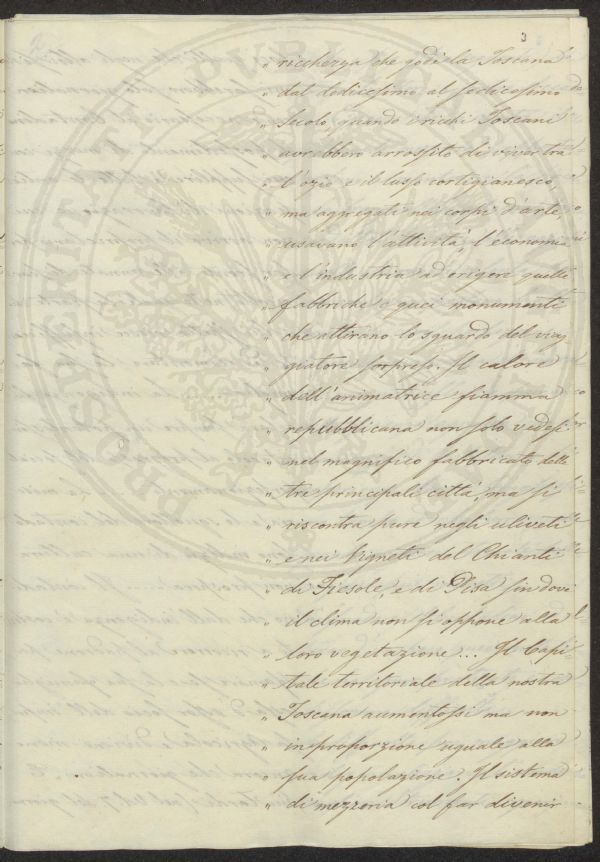 3
„ ricchezza che godè la Toscana
„ dal dodicesimo al sedicesimo
„ Secolo, quando i ricchi Toscani
„ avrebbero arrossito di viver tra
„ l'ozio e il lusso cortigianesco,
„ ma aggregati nei corpi d'arte
„ usavano l'attività, l'economia
„ e l'industria ad erigere quelle
„ fabbriche e quei monumenti
„ che attirano lo sguardo del viag
„ giatore sorpreso. Il calore
„ dell'animatrice fiamma
„ repubblicana non solo vedesi
„ nel magnifico fabbricato delle
„ tre principali città, ma si
„ riscontra pure negli uliveti
„ e nei Vigneti del Chianti
„ di Fiesole, e di Pisa fin dove
„ il clima non si oppone alla
„ loro vegetazione... Il Capi-
„ tale territoriale della nostra
„ Toscana aumentossi ma non
„ in proporzione uguale alla
„ sua popolazione. Il sistema
„ di mezzeria col far divenir
PROSPERITATI PUBLICAE